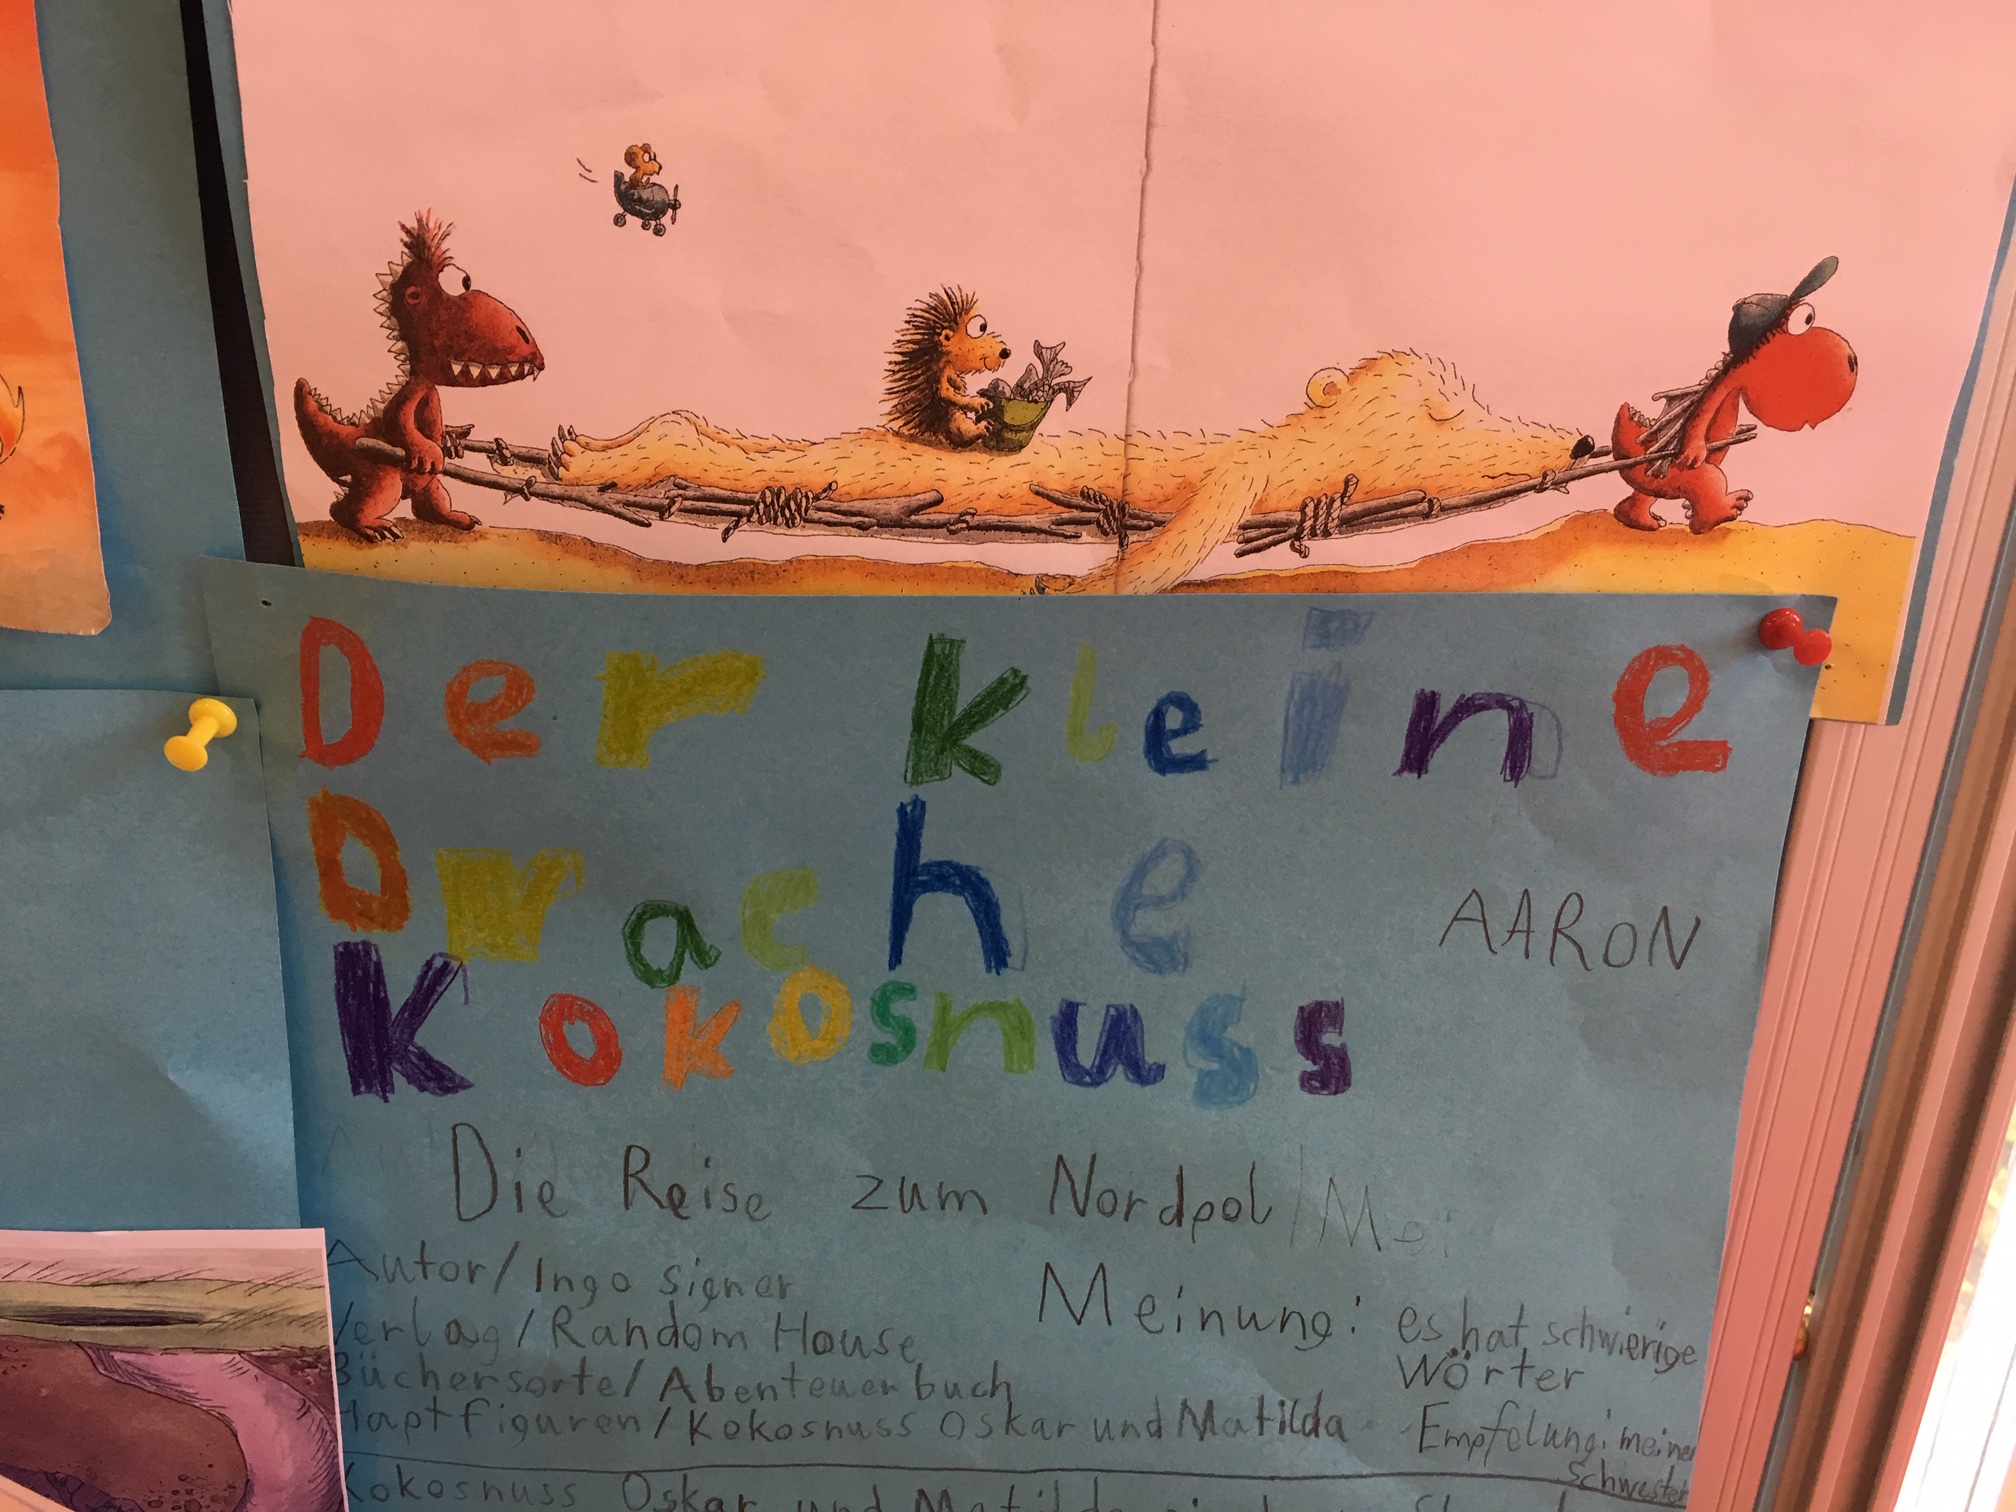 Der kleine
Drache
AARON
Kokosnuss
Die Reise zum Nordpol
Autor/Ingo signer
Verlag/Random House
Büchersorte/Abenteuerbuch
Haptfiguren/Kokosnuss Oskar und Matilda
Meinung: es hat schwierige
Wörter
Empfelung: meiner
Schwester
Kokosnuss Oskar und Matilda